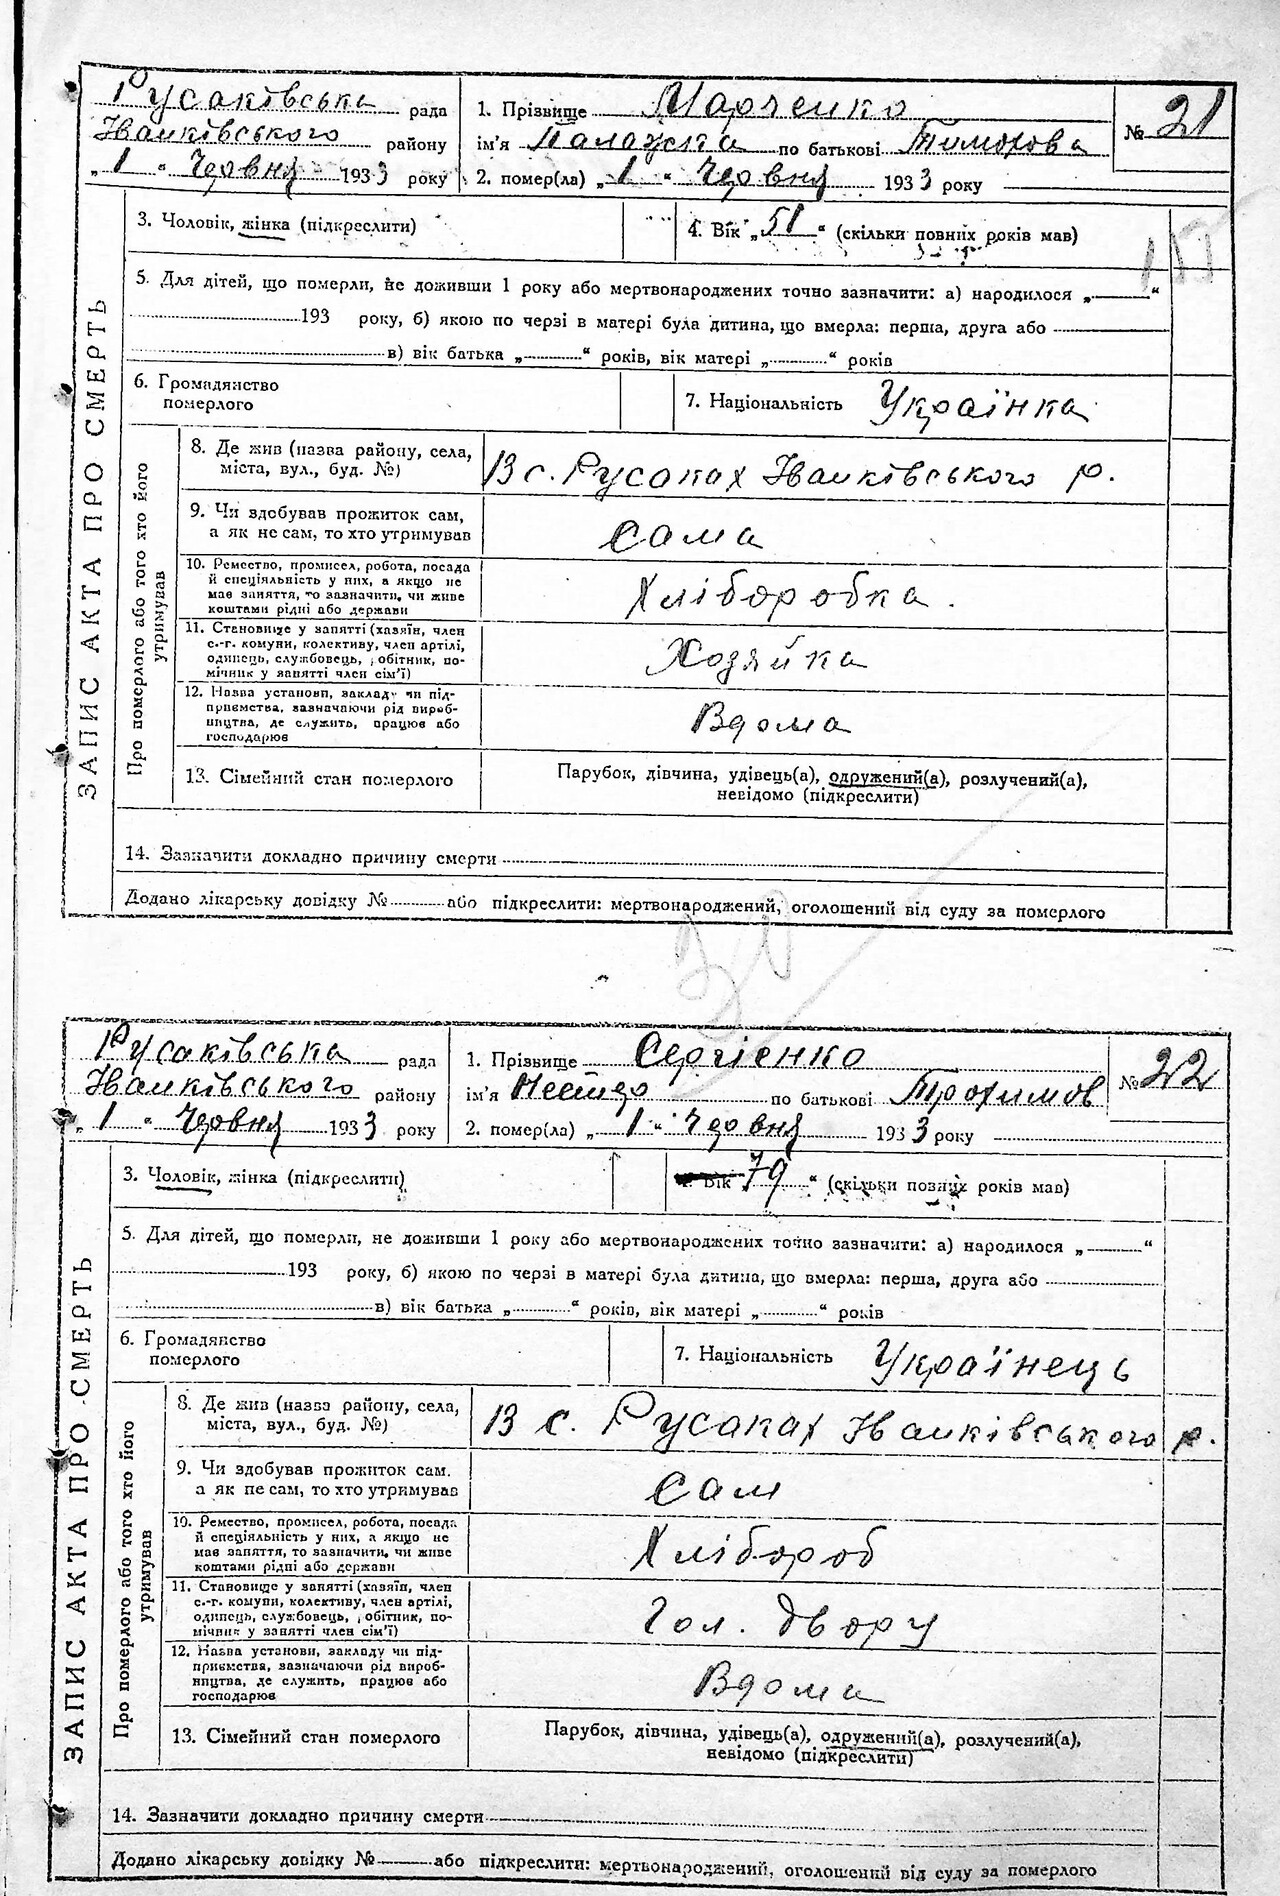 Русаківська рада
Іванківського району
„ 1 " Червня 1933 року
1. Прізвище Марченко
ім'я Палажка по батькові Тимохова
2. помер(ла) „ 1 " Червня 1933 року
№ 21
3. Чоловік, жінка (підкреслити)
4. Вік „ 51 " (скільки повних років мав)
5. Для дітей, що померли, не доживши 1 року або мертвонароджених точно зазначити: а) народилося „ "
193 року, б) якою по черзі в матері була дитина, що вмерла: перша, друга або
в) вік батька „ " років, вік матері „ " років
6. Громадянство
померлого
7. Національність Українка
ЗАПИС АКТА ПРО СМЕРТЬ
Про померлого або того хто його
утримував
8. Де жив (назва району, села,
міста, вул., буд. №)
В с. Русаках Іванківського р.
9. Чи здобував прожиток сам,
а як не сам, то хто утримував
сама
10. Ремество, промисел, робота, посада
й спеціяльність у них, а якщо не
має заняття, то зазначити, чи живе
коштами рідні або держави
Хліборобка.
11. Становище у занятті (хазяїн, член
с.-г. комуни, колективу, член артілі,
одинець, службовець, обітник, по-
мічник у занятті член сім'ї)
Хозяйка
12. Назва установи, закладу чи під-
приємства, зазначаючи рід вироб-
ництва, де служить, працює або
господарює
Вдома
13. Сімейний стан померлого
Парубок, дівчина, удівець(а), одружений(а), розлучений(а),
невідомо (підкреслити)
14. Зазначити докладно причину смерти
Додано лікарську довідку № або підкреслити: мертвонароджений, оголошений від суду за померлого
Русаківська рада
Іванківського району
„ 1 " Червня 1933 року
1. Прізвище Сергієнко
ім'я Нестер по батькові Трохимов
2. помер(ла) „ 1 " Червня 1933 року
№ 22
3. Чоловік, жінка (підкреслити)
4. Вік 79 " (скільки повних років мав)
5. Для дітей, що померли, не доживши 1 року або мертвонароджених точно зазначити: а) народилося „ "
193 року, б) якою по черзі в матері була дитина, що вмерла: перша, друга або
в) вік батька „ " років, вік матері „ " років
6. Громадянство
померлого
7. Національність Українець
ЗАПИС АКТА ПРО СМЕРТЬ
Про померлого або того хто його
утримував
8. Де жив (назва району, села,
міста, вул., буд. №)
В с. Русаках Іванківського р.
9. Чи здобував прожиток сам.
а як не сам, то хто утримував
сам
10. Ремество, промисел, робота, посада
й спеціяльність у них, а якщо не
має заняття, то зазначити, чи живе
коштами рідні або держави
Хлібороб
11. Становище у занятті (хазяїн, член
с.-г. комуни, колективу, член артілі,
одинець, службовець, обітник, по-
мічник у занятті член сім'ї)
Гол. двору
12. Назва установи, закладу чи під-
приємства, зазначаючи рід вироб-
ництва, де служить, працює або
господарює
Вдома
13. Сімейний стан померлого
Парубок, дівчина, удівець(а), одружений(а), розлучений(а),
невідомо (підкреслити)
14. Зазначити докладно причину смерти
Додано лікарську довідку № або підкреслити: мертвонароджений, оголошений від суду за померлого